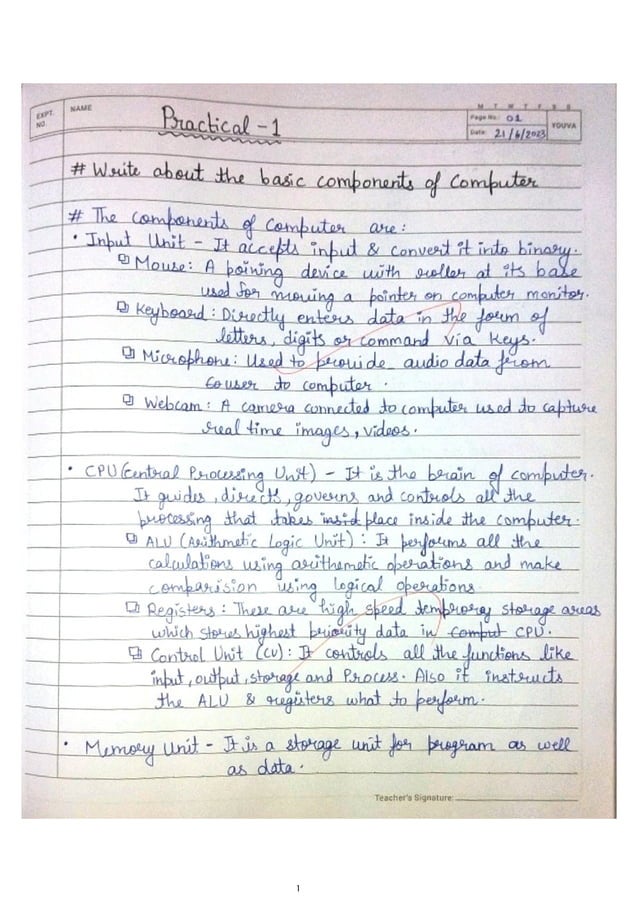 M T W T F S S
EXPT. NO.
NAME
Practical - 1
Page No.: 01
Date: 21/6/2023
YOUVA
# Write about the basic components of Computer
# The components of computer are:
• Input Unit - It accepts input & convert it into binary.
❑ Mouse: A poining device with roller at its base
used for moving a pointer on computer monitor.
❑ Keyboard: Directly enters data in the form of
letters, digits or command via keys.
❑ Microphone: Used to provide audio data from
user to computer.
❑ Webcam: A camera connected to computer used to capture
real time images, videos.
• CPU (Central Processing Unit) - It is the brain of computer.
It guides, directs, governs and controls all the
processing that takes insid place inside the computer.
❑ ALU (Arithmetic Logic Unit): It performs all the
calculations using arithemetic operations and make
comparision using logical operations.
❑ Registers: These are high speed temprory storage areas
which stores highest priority data in comput CPU.
❑ Control Unit (CU): It controls all the functions like
input, output, storage and Process. Also it instructs
the ALU & registers what to perform.
• Memory Unit - It is a storage unit for program as well
as data.
Teacher's Signature:
1